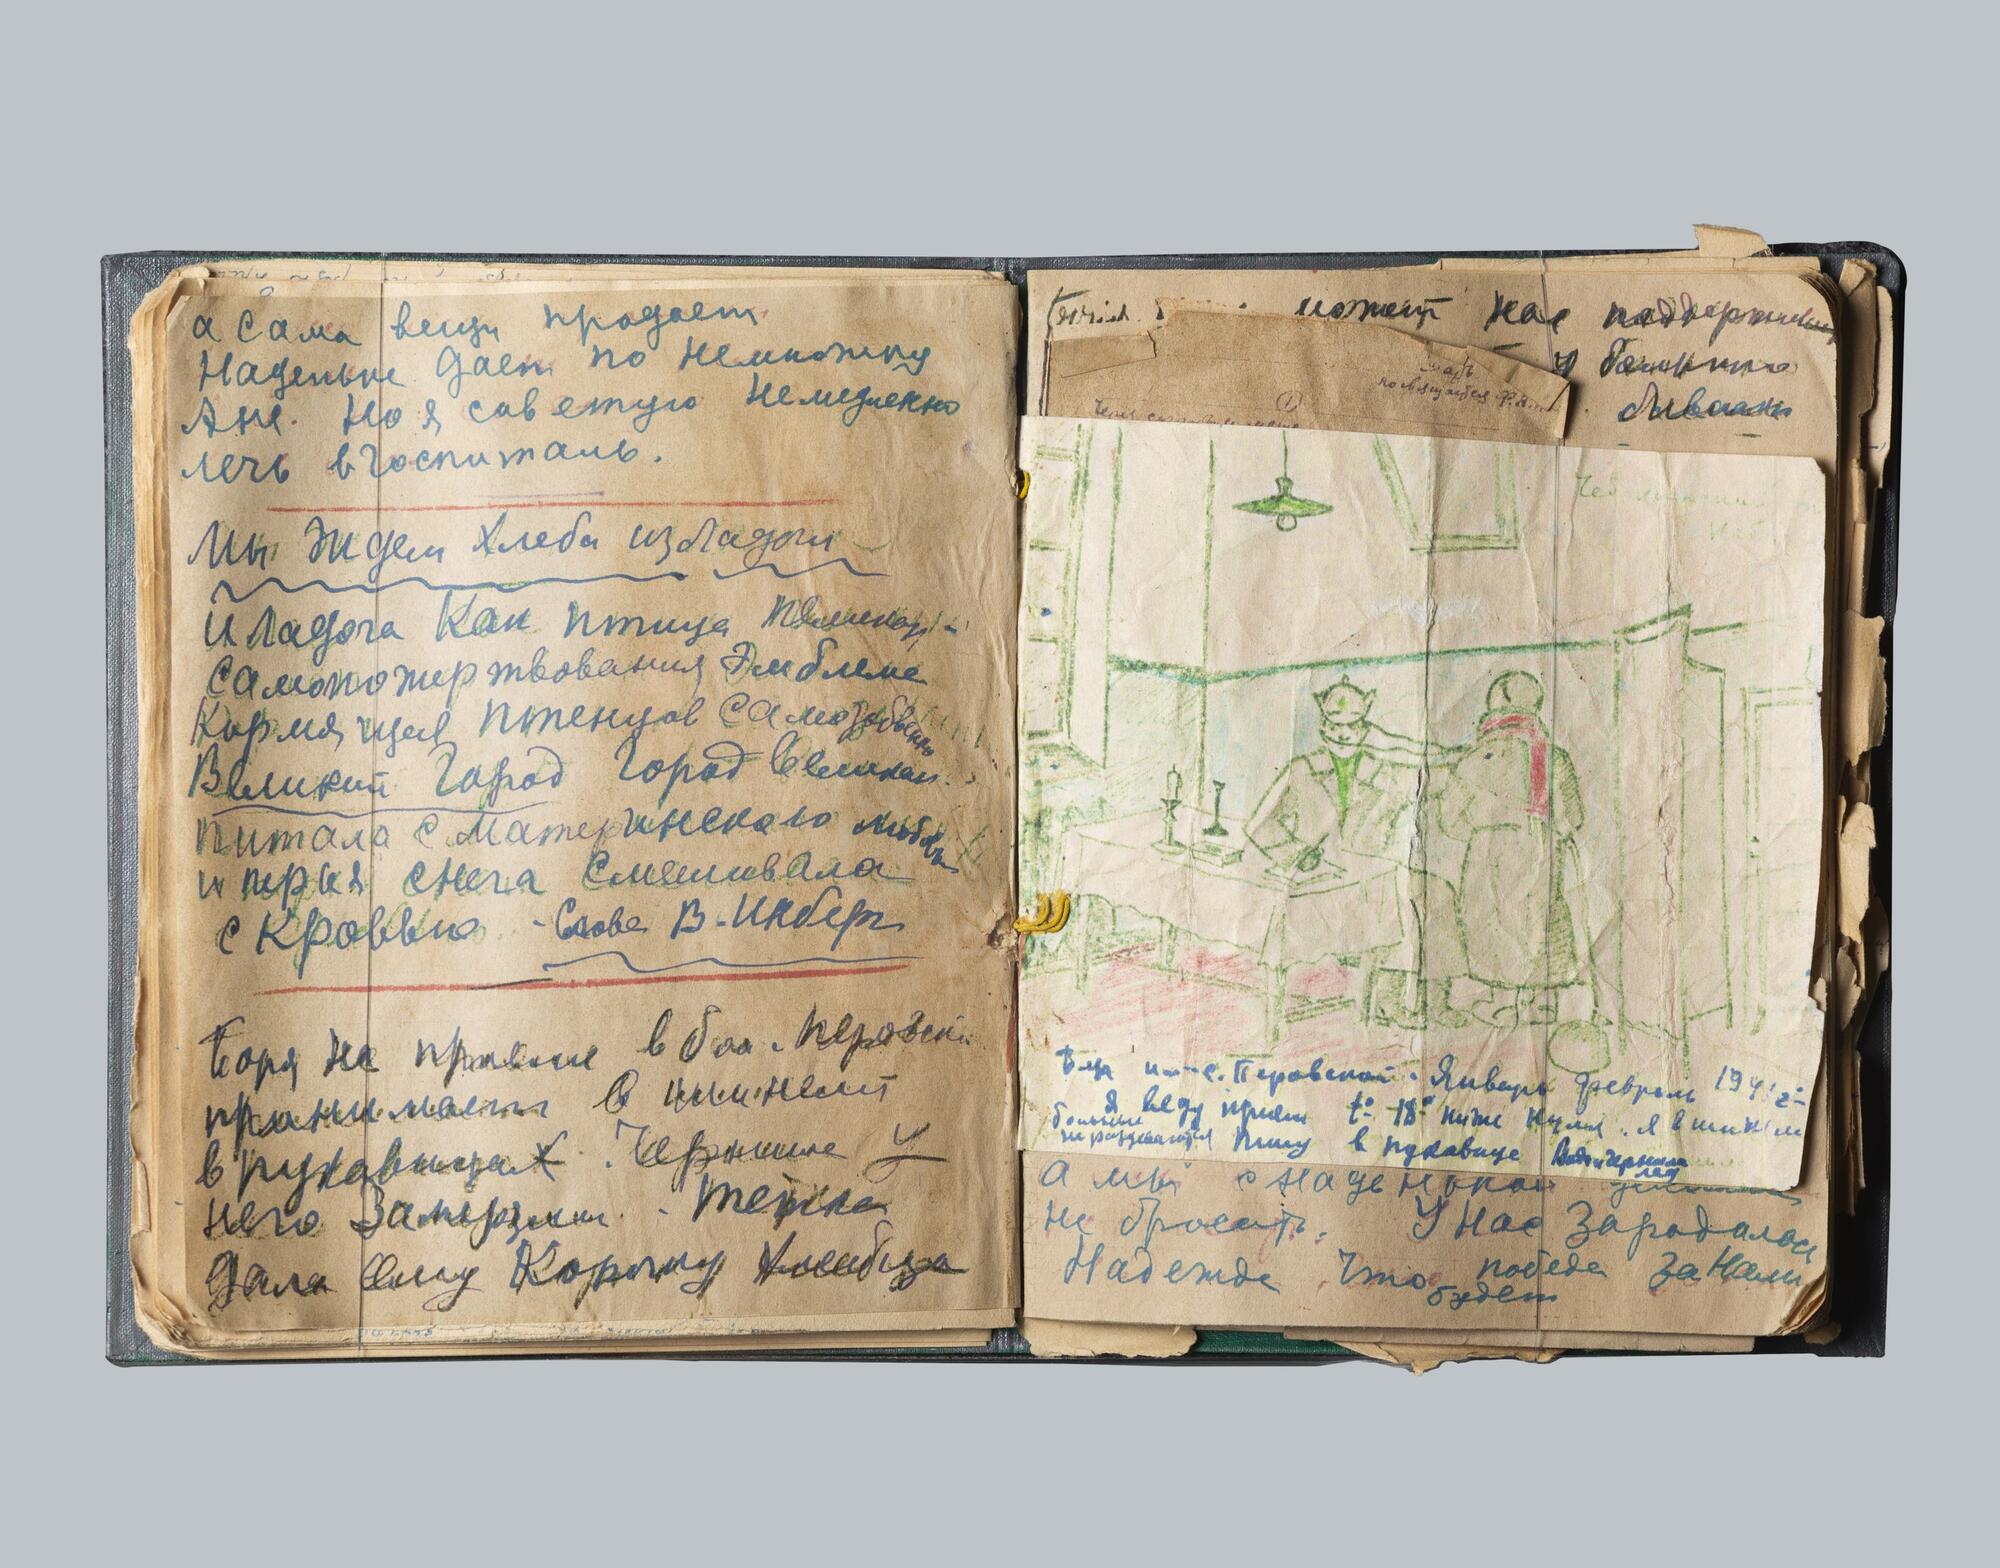 а Сама вещи продает
Наденьке дает по немножку
Ане. Но я советую немедленно
лечь в госпиталь.
Мы Ждем Хлеба из Ладоги
и Ладога Как птица пеликан -
Самопожертвования Эмблема
Кормящая птенцов Самозабвенно
Великий Город Город великан.
питала с Материнскою любовью
и перья снега Смешивала
с Кровью - Слова В. Инбер
Боря на приеме в б-це Перовской
принимает в шинели
в рукавицах. Чернила у
него Замерзли. тетка
дала ему Корочку Хлебца
может нас поддержит
посвящается
Б-ца им. С. Перовской. Январь февраль 1942 г.
Я веду прием t° -18° ниже нуля. я в шинели
больные не раздеваются Пишу в рукавице Вместо чернил лед
А мы с Наденькой
не бросать. У Нас Зародилась
Надежда Что победа За Нами
будет